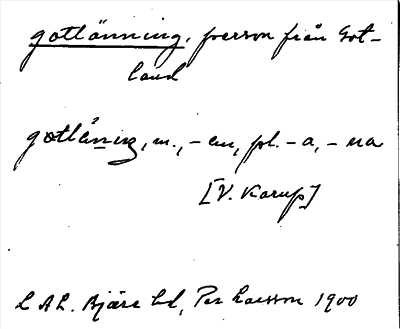 gotlänning, person från Got-
land
gotlänıng, m., -en, pl. -a, -na
[V. Karup]
LAL. Bjäre hd, Per Larsson 1900